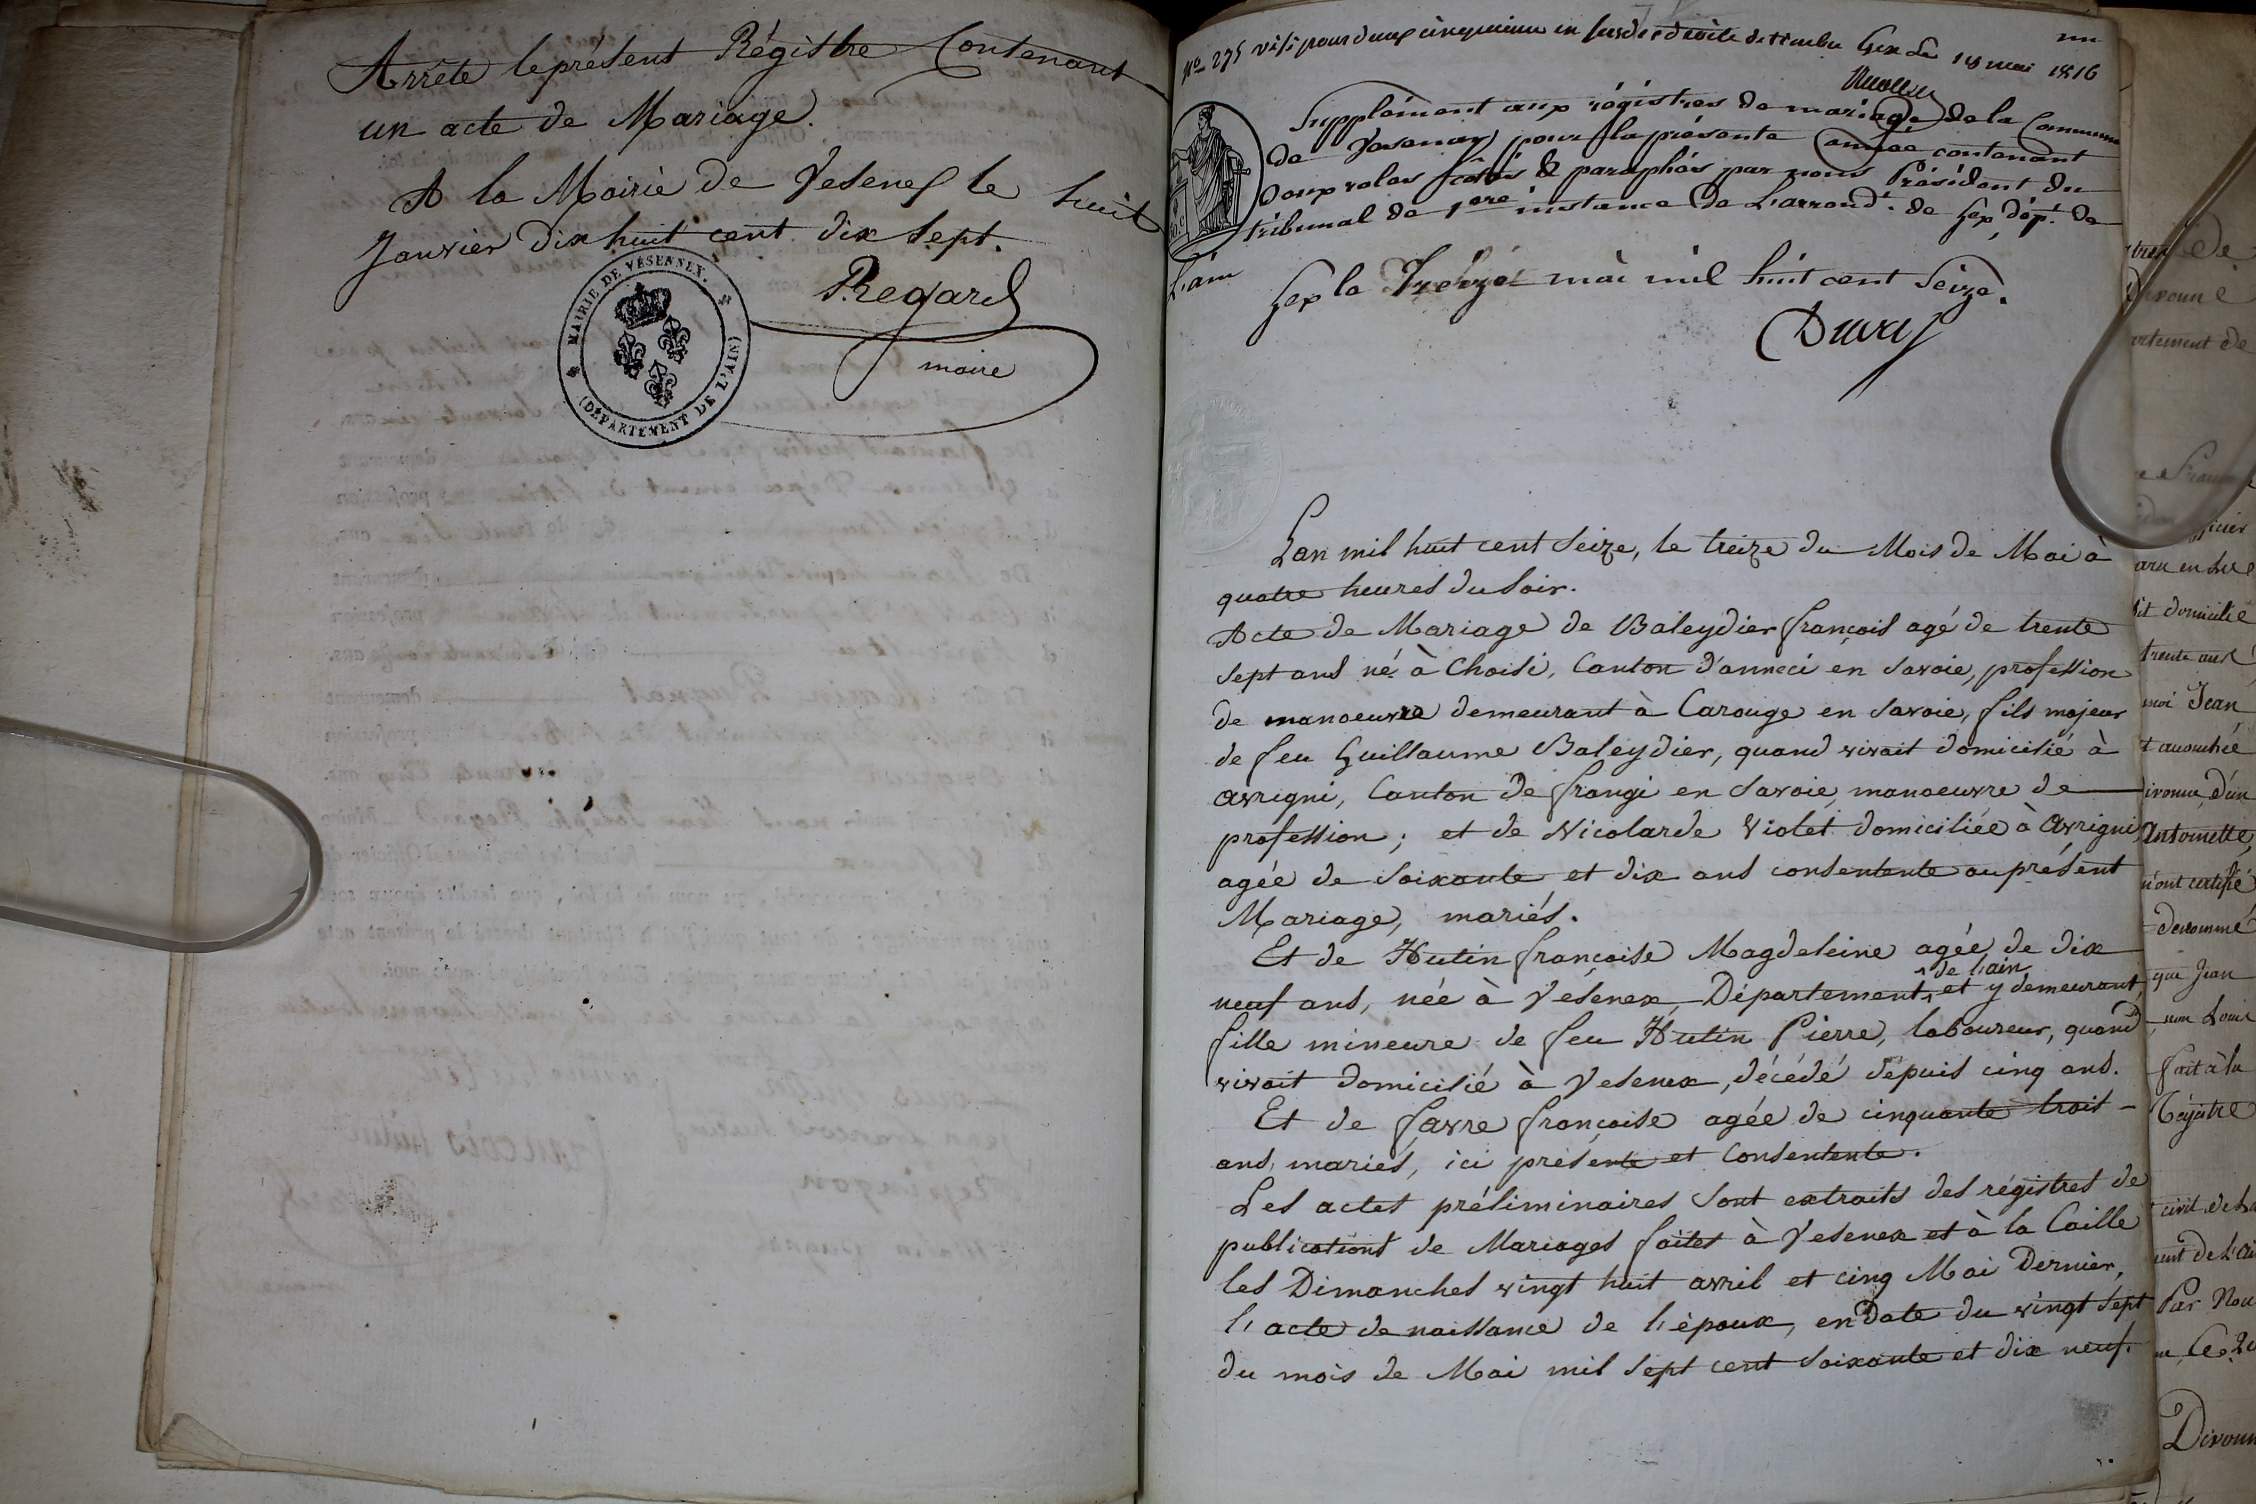 Arrêté le présent Régistre Contenant
un acte de Mariage.
A la Mairie de Vesenex le huit
Janvier dix huit cent dix sept.
Regard
maire
MAIRIE DE VÉSENNEX.
(DÉPARTEMENT DE L'AIN)
N.o 275 visé pour deux cinquième en sus des droits de timbre Gex Le 18 mai 1816
un
Supplément aux régistres de mariage de la Commune
de Vesenex pour la présente année contenant
deux roles cotés & paraphés par nous Président du
tribunal de 1ere instance de L'arrond.t de Gex, dép.t de
L'ain
Gex le Treize mai mil huit cent Seize.
L'an mil huit cent Seize, le treize du Mois de Mai à
quatre heures du Soir.
Acte de Mariage de Baleydier françois agé de trente
Sept ans né à Choisi, Canton d'anneci en Savoie, profession
de manoeuvre demeurant à Carouge en Savoie, fils majeur
de feu Guillaume Baleydier, quand vivait domicilié à
avrigni, Canton de frangi en Savoie, manoeuvre de
profession; et de Nicolarde Violet domiciliée à avrigni,
agée de Soixante et dix ans consentente au présent
Mariage, mariés.
Et de Hutin françoise Magdeleine agée de dix
neuf ans, née à Vesenex, Département de l'ain et y demeurant,
fille mineure de feu Hutin Pierre, laboureur, quand
vivait domicilié à Vesenex, décédé depuis cinq ans.
Et de favre françoise agée de cinquante trois -
ans, mariés, ici présente et Consentente.
Les actes préliminaires Sont extraits des régistres de
publications de Mariages faites à Vesenex et à la Caille
les Dimanches vingt huit avril et cinq Mai Dernier,
l'acte de naissance de l'époux, en Date du vingt Sept
du mois de Mai mil Sept cent Soixante et dix neuf.